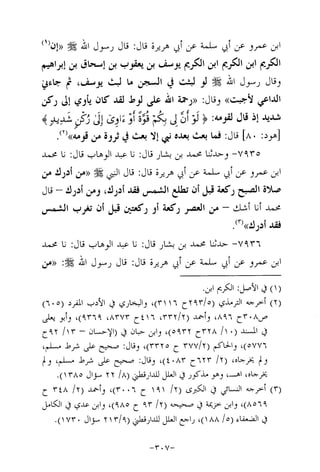 ابن عمرو عن أبي سلمة عن أبي هريرة قال: قال رسول الله ﷺ «إن(١)
الكريم ابن الكريم ابن الكريم يوسف بن يعقوب بن إسحاق بن إبراهيم
وقال رسول الله ﷺ لو لبثت في السجن ما لبث يوسف، ثم جاءني
الداعي لأجبت» وقال: «رحمة الله على لوط لقد كان يأوي إلى ركن
شديد إذ قال لقومه: ﴿ لَوْ أَنَّ لِى بِكُمْ قُوَّةً أَوْ ءَاوِىٓ إِلَىٰ رُكْنٍ شَدِيدٍ ﴾
[هود: ٨٠] قال: فما بعث بعده نبي إلا بعث في ثروة من قومه»(٢).
٧٩٣٥- وحدثنا محمد بن بشار قال: نا عبد الوهاب قال: نا محمد
ابن عمرو عن أبي سلمة عن أبي هريرة قال: قال النبي ﷺ «من أدرك من
صلاة الصبح ركعة قبل أن تطلع الشمس فقد أدرك، ومن أدرك - قال
محمد أنا أشك - من العصر ركعة أو ركعتين قبل أن تغرب الشمس
فقد أدرك»(٣).
٧٩٣٦- حدثنا محمد بن بشار قال: نا عبد الوهاب قال: نا محمد
ابن عمرو عن أبي سلمة عن أبي هريرة قال: قال رسول الله ﷺ: «من
(١) في الأصل: الكريم ابن.
(٢) أخرجه الترمذي (٢٩٣/٥ ح ٣١١٦)، والبخاري في الأدب المفرد (٦٠٥)
ص٣٠٨ ح ٨٩٦، وأحمد (٣٣٢/٢، ٤١٦ ح ٨٣٧٣، ٩٣٦٩)، وأبو يعلى
في المسند (٣٢٨/١٠ ح ٥٩٣٢)، وابن حبان في (الإحسان - ٩٢/١٣ ح
٥٧٧٦)، والحاكم (٣٧٧/٢ ح ٣٣٢٥)، وقال: صحيح على شرط مسلم،
ولم يخرجاه، (٦٢٣/٢ ح ٤٠٨٣)، وقال: صحيح على شرط مسلم، ولم
يخرجاه، اهـ، وهو مذكور في العلل للدارقطني (٢٢/٨ سؤال ١٣٨٥).
(٣) أخرجه النسائي في الكبرى (١٩١/٢ ح ٣٠٠٦)، وأحمد (٣٤٨/٢ ح
٨٥٦٩)، وابن خزيمة في صحيحه (٩٣/٢ ح ٩٨٥)، وابن عدي في الكامل
في الضعفاء (١٨٨/٥)، راجع العلل للدارقطني (٢١٣/٩ سؤال ١٧٣٠).
-٣٠٧-